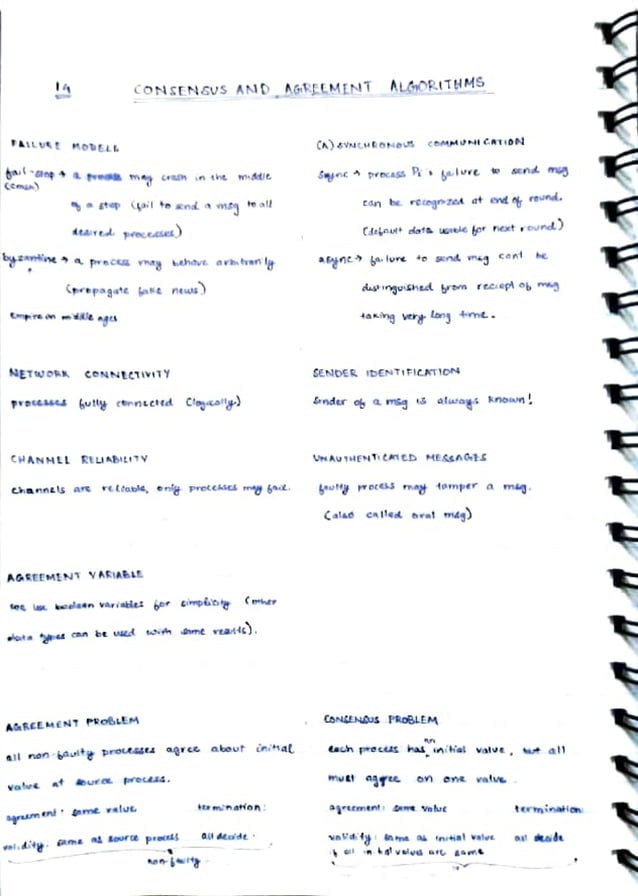 14 CONSENSUS AND AGREEMENT ALGORITHMS
FAILURE MODELS
fail-stop → a process may crash in the middle
(crash)
of a step (fail to send a msg to all
desired processes)
byzantine → a process may behave arbitrarily
(propagate fake news)
empire in middle ages
(A)SYNCHRONOUS COMMUNICATION
sync → process Pi's failure to send msg
can be recognized at end of round.
(default data usable for next round)
async → failure to send msg cant be
distinguished from reciept of msg
taking very long time.
NETWORK CONNECTIVITY
processes fully connected (logically)
SENDER IDENTIFICATION
Sender of a msg is always known!
CHANNEL RELIABILITY
channels are reliable, only processes may fail.
UNAUTHENTICATED MESSAGES
faulty process may tamper a msg.
(also called oral msg)
AGREEMENT VARIABLE
we use boolean variables for simplicity (other
data types can be used with same results).
AGREEMENT PROBLEM
all non-faulty processes agree about initial
value at source process.
agreement: same value termination:
validity: same as source process all decide.
non-faulty.
CONSENSUS PROBLEM
an
each process has initial value, but all
must agree on one value.
agreement: same value termination:
validity: same as initial value all decide
if all initial values are same